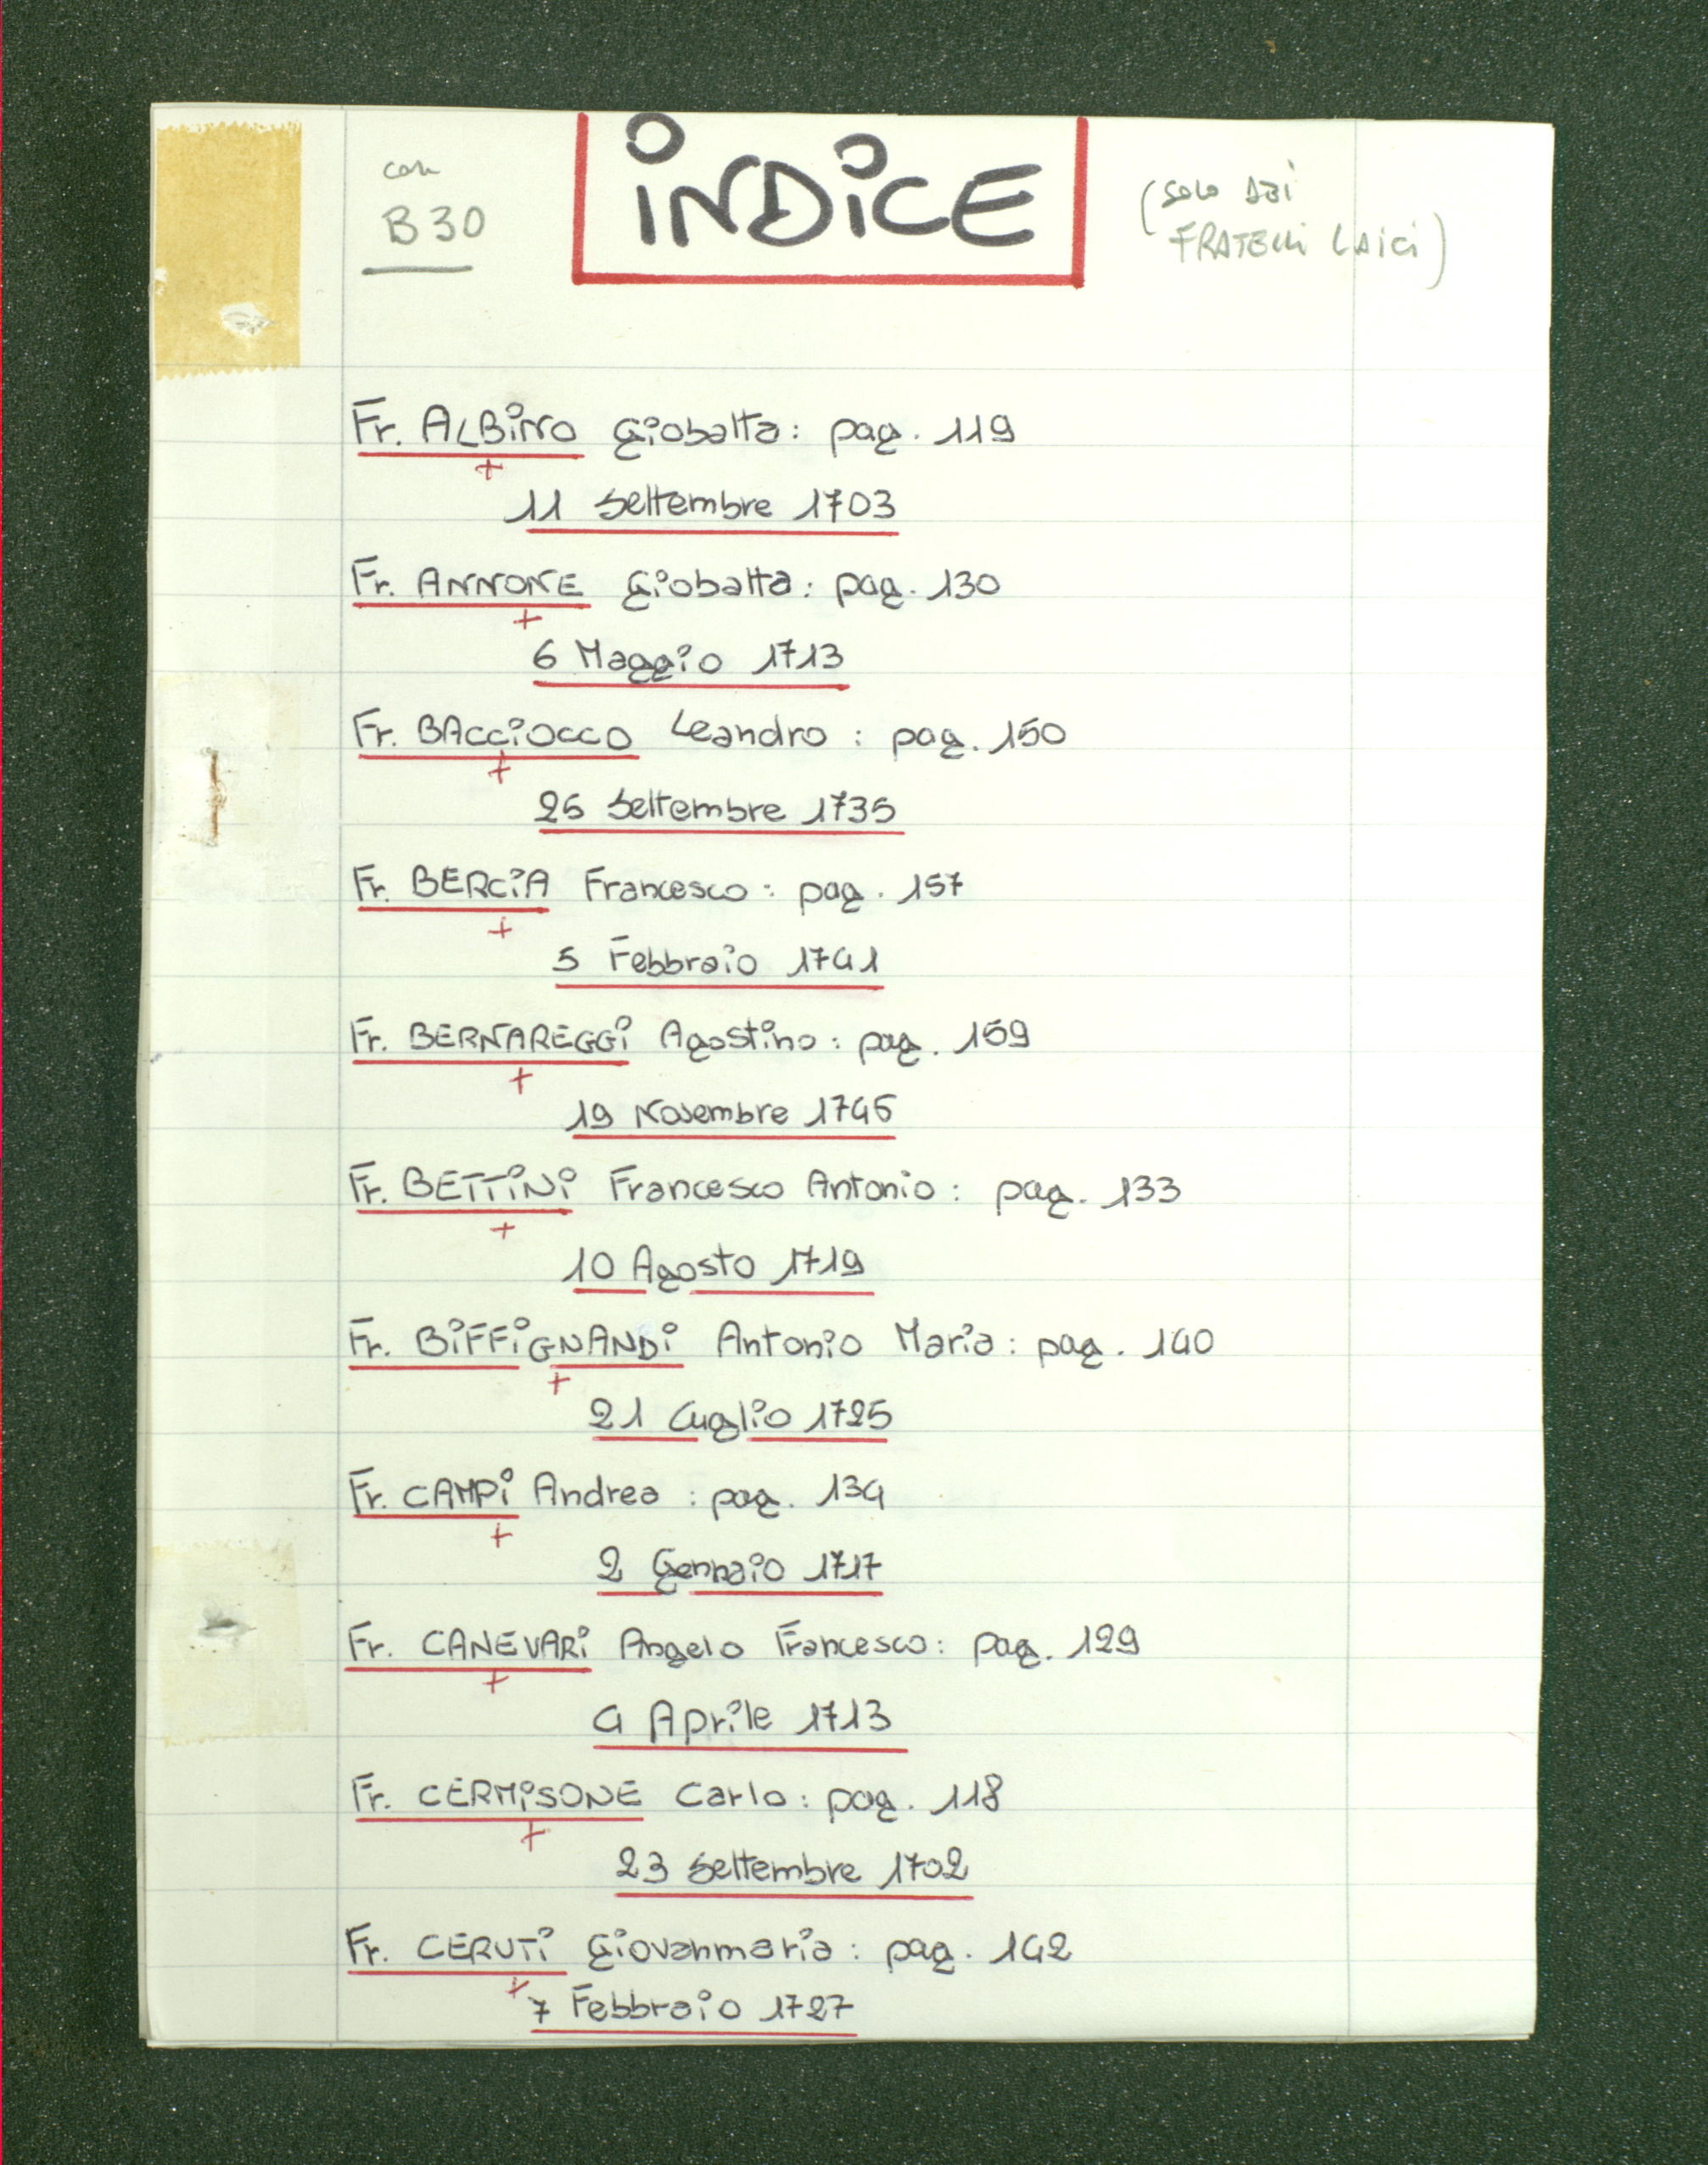 con
B 30
INDICE
(SOLO DEI
FRATELLI LAICI)
Fr. ALBINO Giobatta: pag. 119
+
11 Settembre 1703
Fr. ANNONE Giobatta: pag. 130
+
6 Maggio 1713
Fr. BACCIOCCO Leandro: pag. 150
+
25 Settembre 1735
Fr. BERCIA Francesco: pag. 157
+
5 Febbraio 1741
Fr. BERNAREGGI Agostino: pag. 159
+
19 Novembre 1745
Fr. BETTINI Francesco Antonio: pag. 133
+
10 Agosto 1719
Fr. BIFFIGNANDI Antonio Maria: pag. 140
+
21 Luglio 1725
Fr. CAMPI Andrea: pag. 134
+
2 Gennaio 1717
Fr. CANEVARI Angelo Francesco: pag. 129
+
4 Aprile 1713
Fr. CERMISONE Carlo: pag. 118
+
23 Settembre 1702
Fr. CERUTI Giovanmaria: pag. 142
+
7 Febbraio 1727